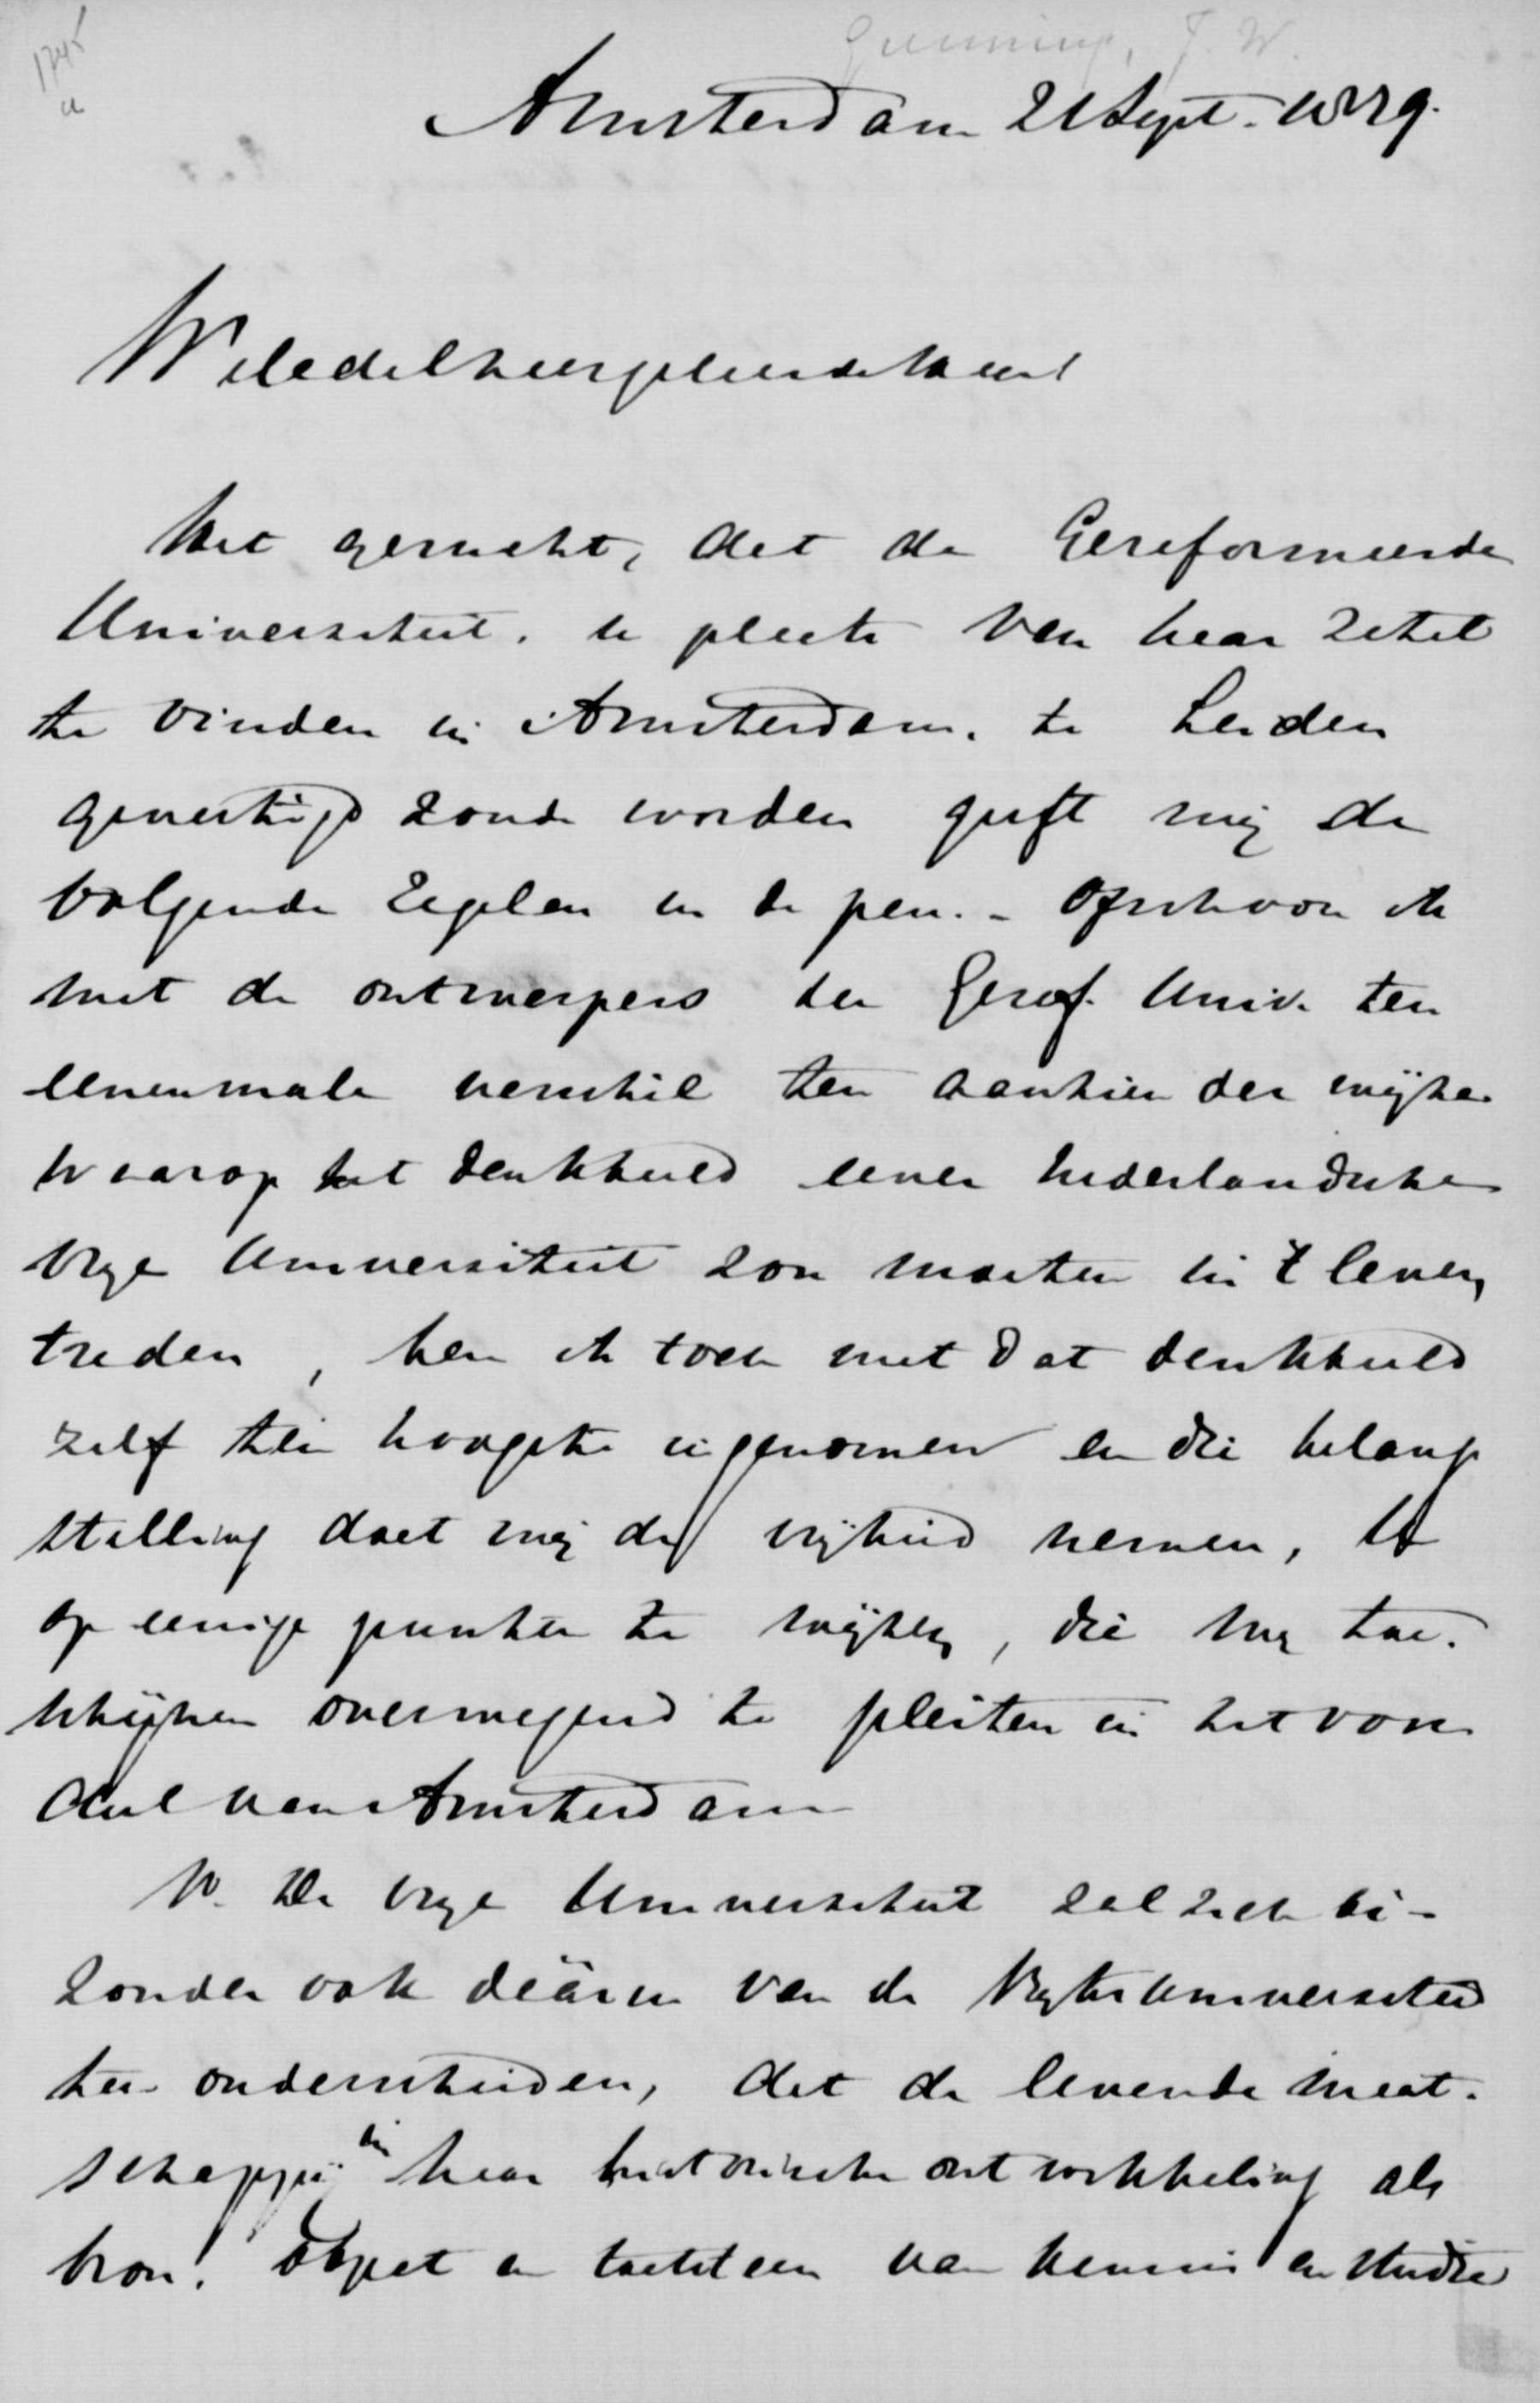 1745
a
Gunning, J. W.
Amsterdam 21 Sept. 1879.
Weledelheergeleerde heer!
Het gerucht, dat de Gereformeerde
Universiteit, in plaats van haar zetel
te vinden in Amsterdam, te Leiden
gevestigd zoude worden geeft mij de
volgende regelen in de pen. - Ofschoon ik
met de ontwerpers der Geref. Univ. ten
eenenmale verschil ten aanzien der wijze
waarop het denkbeeld eener Nederlandsche
vrije Universiteit zou moeten in 't leven
treden, ben ik toch met dat denkbeeld
zelf ten hoogste ingenomen en die belang
stelling doet mij de vrijheid nemen, U
op eenige punten te wijzen, die mij toe.
schijnen overwegend te pleiten in het voor
deel van Amsterdam
1o. De vrije Universiteit zal zich bi-
zonder ook dáárin van de Rijksuniversitei
ten onderscheiden, dat de levende maat.
schappij in haar historische ontwikkeling als
bron, object en toetsteen van kennis en studie